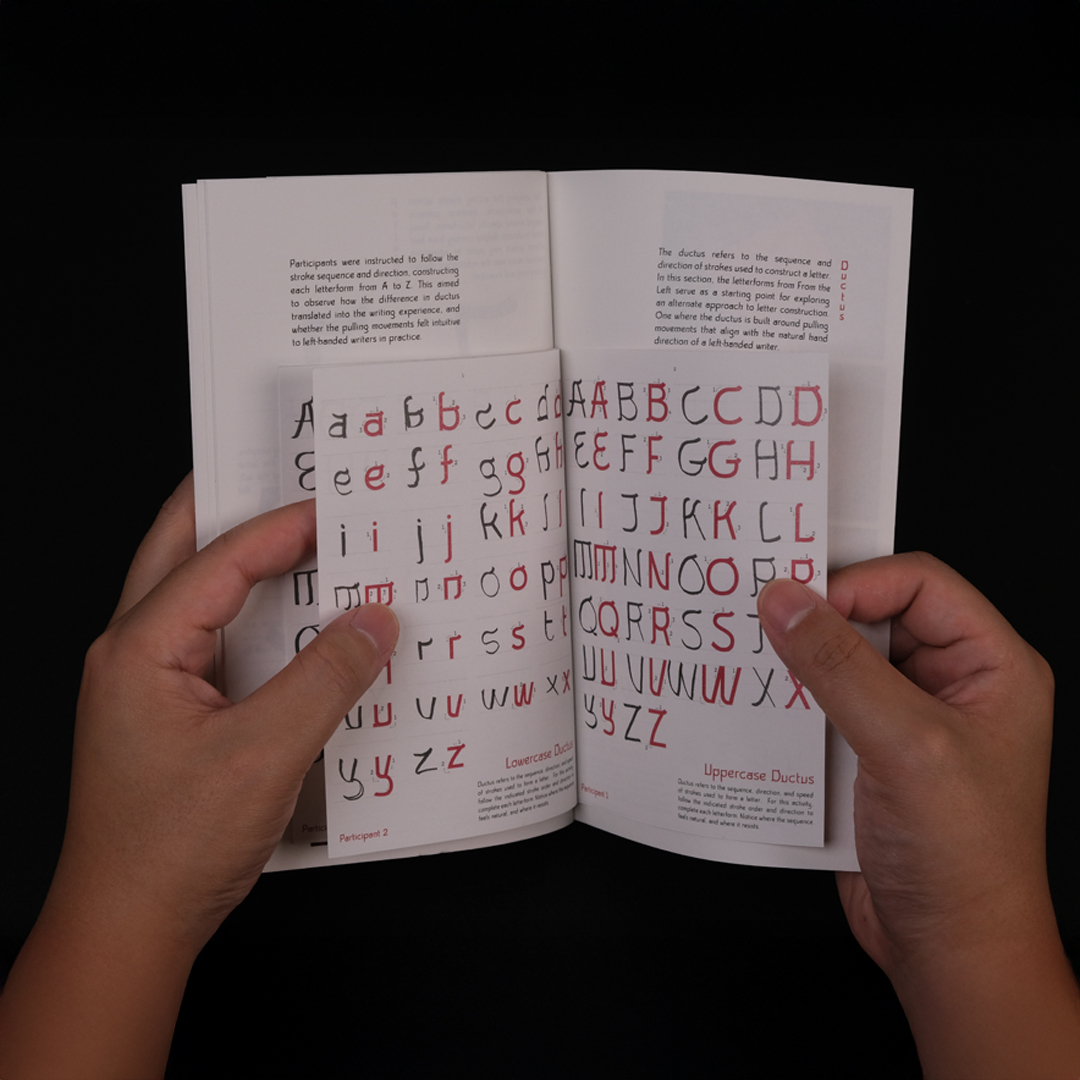 Participants were instructed to follow the
stroke sequence and direction, constructing
each letterform from A to Z. This aimed
to observe how the difference in ductus
translated into the writing experience, and
whether the pulling movements felt intuitive
to left-handed writers in practice.
a a b b c c d d
e e f f g g h h
i i j j k k l l
m m n n o o p p
r r s s t t
u u v v w w x x
y y z z
Lowercase Ductus
Ductus refers to the sequence, direction, and speed
of strokes used to form a letter. For this activity,
follow the indicated stroke order and direction to
complete each letterform. Notice where the sequence
feels natural, and where it resists.
Participant 2
The ductus refers to the sequence and
direction of strokes used to construct a letter.
In this section, the letterforms from From the
Left serve as a starting point for exploring
an alternate approach to letter construction.
One where the ductus is built around pulling
movements that align with the natural hand
direction of a left-handed writer.
Ductus
A A B B C C D D
E E F F G G H H
I I J J K K L L
M M N N O O P P
Q Q R R S S T
U U V V W W X X
y y Z Z
Uppercase Ductus
Ductus refers to the sequence, direction, and speed
of strokes used to form a letter. For this activity,
follow the indicated stroke order and direction to
complete each letterform. Notice where the sequence
feels natural, and where it resists.
Participant 1